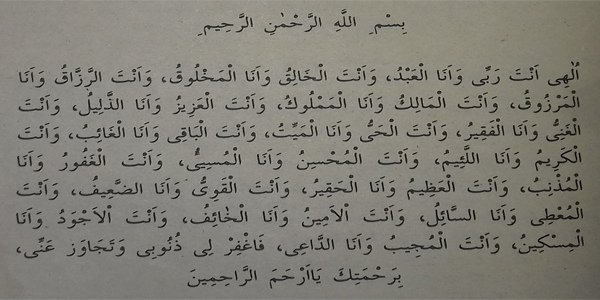 بِسْمِ اللَّهِ الرَّحْمٰنِ الرَّحِيمِ
اٰلٰهِى اَنْتَ رَبِّى وَاَنَا الْعَبْدُ، وَاَنْتَ الْخَالِقُ وَاَنَا الْمَخْلُوقُ، وَاَنْتَ الرَّزَّاقُ وَاَنَا
الْمَرْزُوقُ، وَاَنْتَ الْمَالِكُ وَاَنَا الْمَمْلُوكُ، وَاَنْتَ الْعَزِيزُ وَاَنَا الذَّلِيلُ، وَاَنْتَ
الْغَنِىُّ وَاَنَا الْفَقِيرُ، وَاَنْتَ الْحَىُّ وَاَنَا الْمَيِّتُ، وَاَنْتَ الْبَاقِى وَاَنَا الْفَائِبُ، وَاَنْتَ
الْكَرِيمُ وَاَنَا اللَّئِيمُ، وَاَنْتَ الْمُحْسِنُ وَاَنَا الْمُسِيئُ، وَاَنْتَ الْغَفُورُ وَاَنَا
الْمُذْنِبُ، وَاَنْتَ الْعَظِيمُ وَاَنَا الْحَقِيرُ، وَاَنْتَ الْقَوِىُّ وَاَنَا الضَّعِيفُ، وَاَنْتَ
الْمُعْطِى وَاَنَا السَّائِلُ، وَاَنْتَ الْاَمِينُ وَاَنَا الْخَائِفُ، وَاَنْتَ الْاَجْوَدُ وَاَنَا
الْمِسْكِينُ، وَاَنْتَ الْمُجِيبُ وَاَنَا الدَّاعِى، فَاغْفِرْ لِى ذُنُوبِى وَتَجَاوَز عَنِّى،
بِرَحْمَتِكَ يَااَرْحَمَ الرَّاحِمِينَ